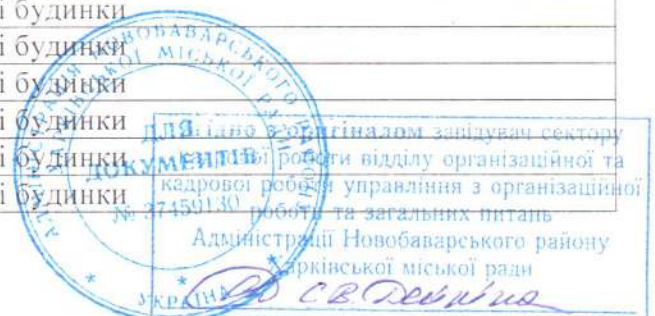 і будинки
і будинки
і будинки
і будинки
і будинки
і будинки
АДМІНІСТРАЦІЯ НОВОБАВАРСЬКОГО РАЙОНУ
ХАРКІВСЬКОЇ МІСЬКОЇ РАДИ
ДЛЯ
ДОКУМЕНТІВ
№ 37459130
УКРАЇНА
Згідно з оригіналом завідувач сектору
кадрової роботи відділу організаційної та
кадрової роботи управління з організаційної
роботи та загальних питань
Адміністрації Новобаварського району
Харківської міської ради